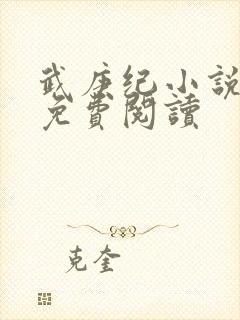 武庚纪小說
免費閱讀
克奎